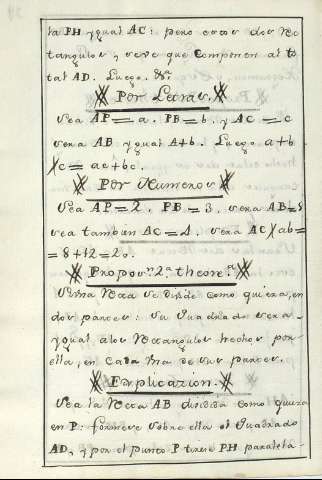 ra PH ygual AC: pero estos dos Rec
tangulos, se ve que componen al to
tal AD. Luego. &a.
Por Letras
Sea AP = a. PB = b. y AC = c
sera AB ygual a+b. Luego a+b
X c = ac + bc.
Por Numeros
Sea AP = 2. PB = 3. sera AB = 5
sea tambien AC = 4. sera AC X ab =
= 8 + 12 = 20.
Propos.n 2.a theore.a
Si una Recta se divide como quiera, en
dos partes: su Quadrado sera
ygual a los Rectangulos hechos por
ella, en cada una de sus partes.
Explicazion.
Sea la Recta AB dividida como quiera
en P: formese sobre ella el Quadrado
AD, y por el punto P tirese PH paralela